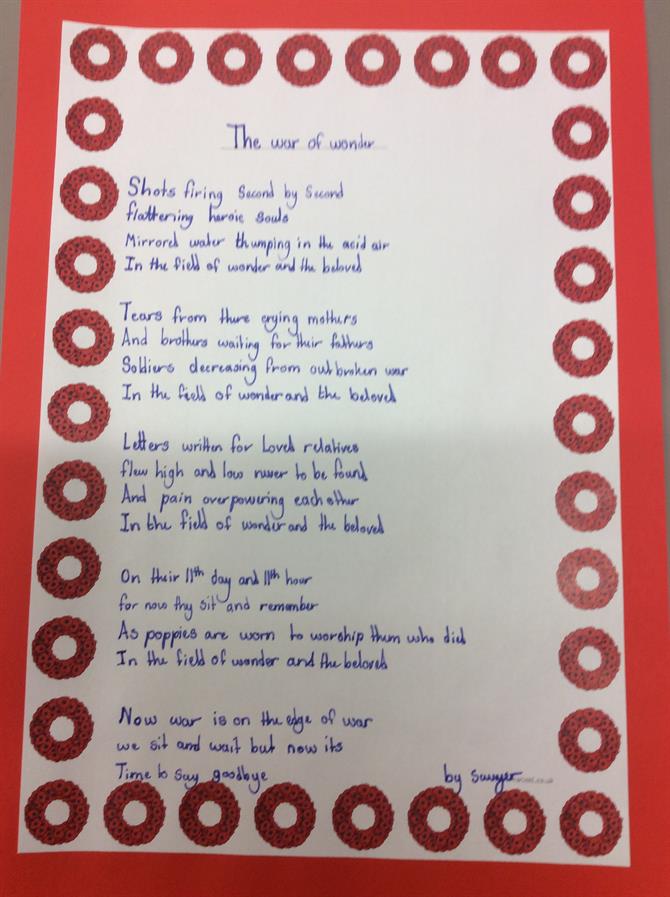 The war of wonder
Shots firing second by second
flattening heroic souls
Mirrored water thumping in the acid air
In the field of wonder and the beloved
Tears from there crying mothers
And brothers waiting for their fathers
Soldiers decreasing from outbroken war
In the field of wonder and the beloved
Letters written for Loved relatives
flew high and low never to be found
And pain overpowering each other
In the field of wonder and the beloved
On their 11th day and 11th hour
for now thy sit and remember
As poppies are worn to worship them who died
In the field of wonder and the beloved
Now war is on the edge of war
we sit and wait but now its
Time to say goodbye
by Sawyer